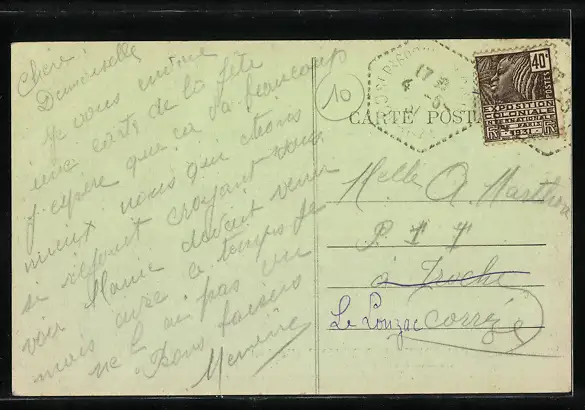 Chère
Demoiselle
Je vous envoie
une carte de la fête
J'espère que ça va beaucoup
mieux nous que étions
si réjouit croyant vous
voir Mamie devait venir
mais avec ce temps Je
ne l'ai pas vu
Bons baisers
10
CARTE POSTALE
17 35
4 -5
40c
POSTES
EXPOSITION
COLONIALE
INTERNATIONALE
PARIS
1931
Melle A. Marthon
P T T
à Troche
Le Lonzac Corrèze